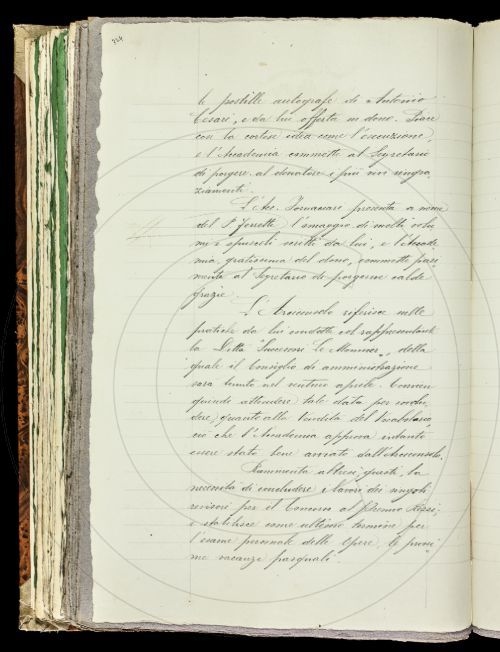 224
le postille autografe di Antonio
Cesari, e da lui offerta in dono. Piace
con la cortese idea come l'esecuzione,
e l'Accademia commette al Segretario
di porgere al donatore i più vivi ringra-
ziamenti.
L'Acc. Tommasini presenta a nome
del P. Ferrette l'omaggio di molti volu
mi e opuscoli scritti da lui, e l'Accade
mia, gratissima del dono, commette pari
mente al Segretario di porgerne calde
grazie.
L'Arciconsolo riferisce sulle
pratiche da lui condotte col rappresentante
la Ditta "Successori Le Monnier", della
quale il Consiglio di amministrazione
sarà tenuto nel venturo aprile. Convien
quindi attendere tale data per conclu
dere quanto alla Vendita del Vocabolario
ciò che l'Accademia approva intanto
essere stato bene avviato dall'Arciconsolo.
Rammenta altresì questi la
necessità di concludere i lavori dei singoli
revisori per il Concorso al Premio Rezzi,
e stabilisce come ultimo termine per
l'esame personale delle Opere, le prossi
me vacanze pasquali.